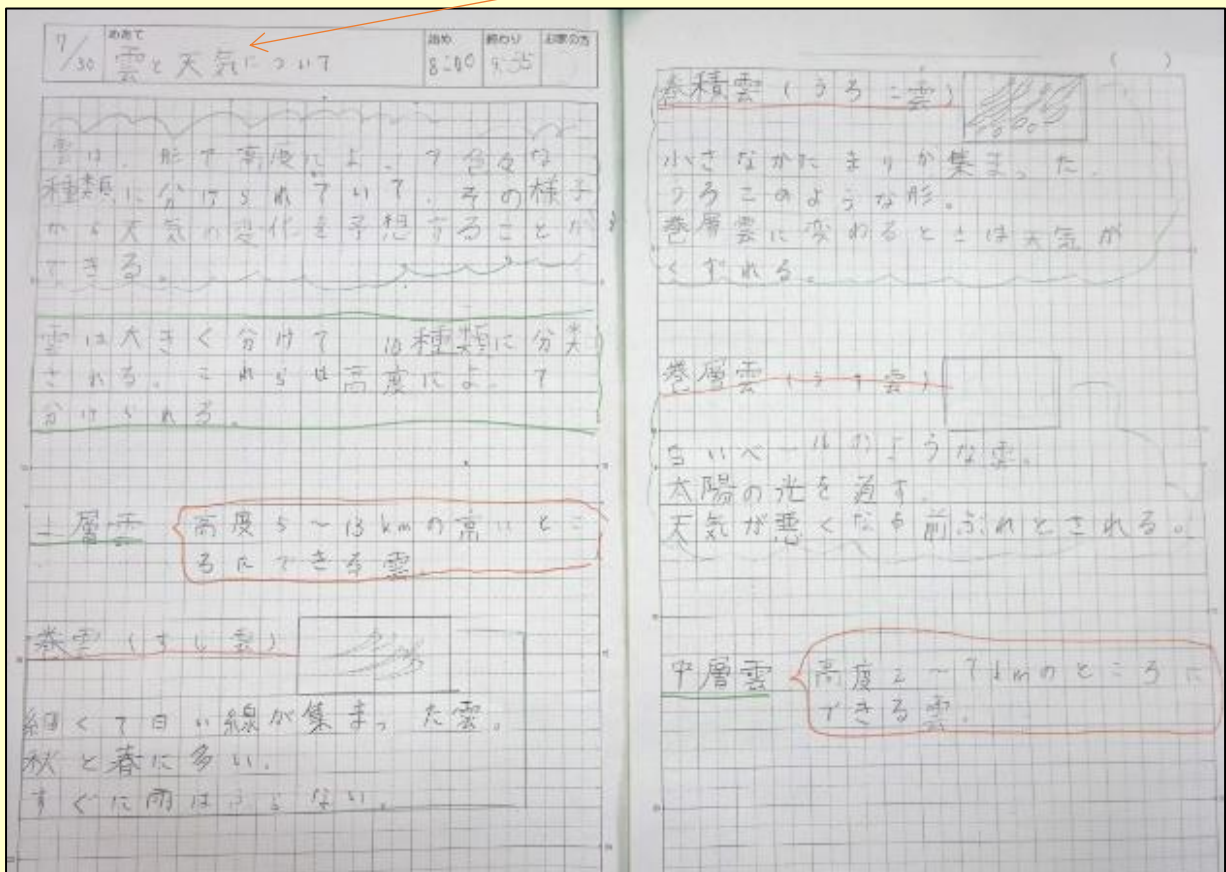 7/30
めあて
雲と天気について
始め
8:40
終わり
9:55
お家の方
雲は、形や高度によって色々な
種類に分けられていて、その様子
から天気の変化を予想することが
できる。
雲は大きく分けて 10種類に分類
される。これらは高度によって
分けられる。
上層雲
高度5~13kmの高いとこ
ろにできる雲
巻雲(すじ雲)
細くて白い線が集まった雲。
秋と春に多い。
すぐに雨はふらない。
( )
巻積雲(うろこ雲)
小さなかたまりが集まった、
うろこのような形。
巻層雲に変わるときは天気が
くずれる。
巻層雲(うす雲)
白いベールのような雲。
太陽の光を通す。
天気が悪くなる前ぶれとされる。
中層雲
高度2~7kmのところに
できる雲。